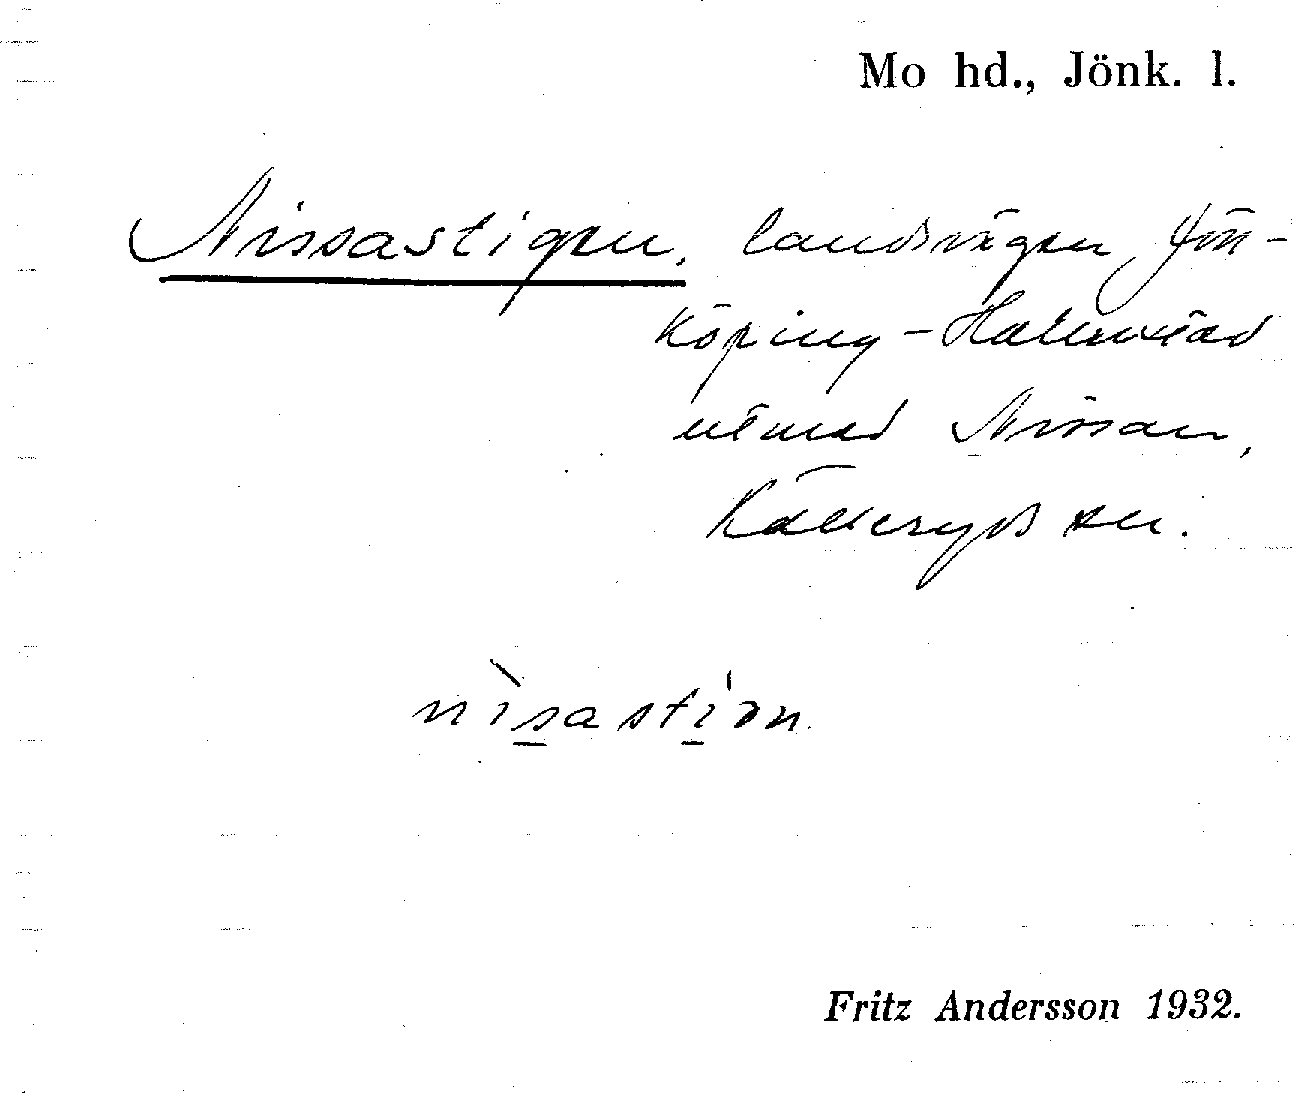 Mo hd., Jönk. l.
Nissastigen, landsvägen Jön-
köping - Halmstad
utmed Nissan,
Källeryds sn.
nisastiən.
Fritz Andersson 1932.